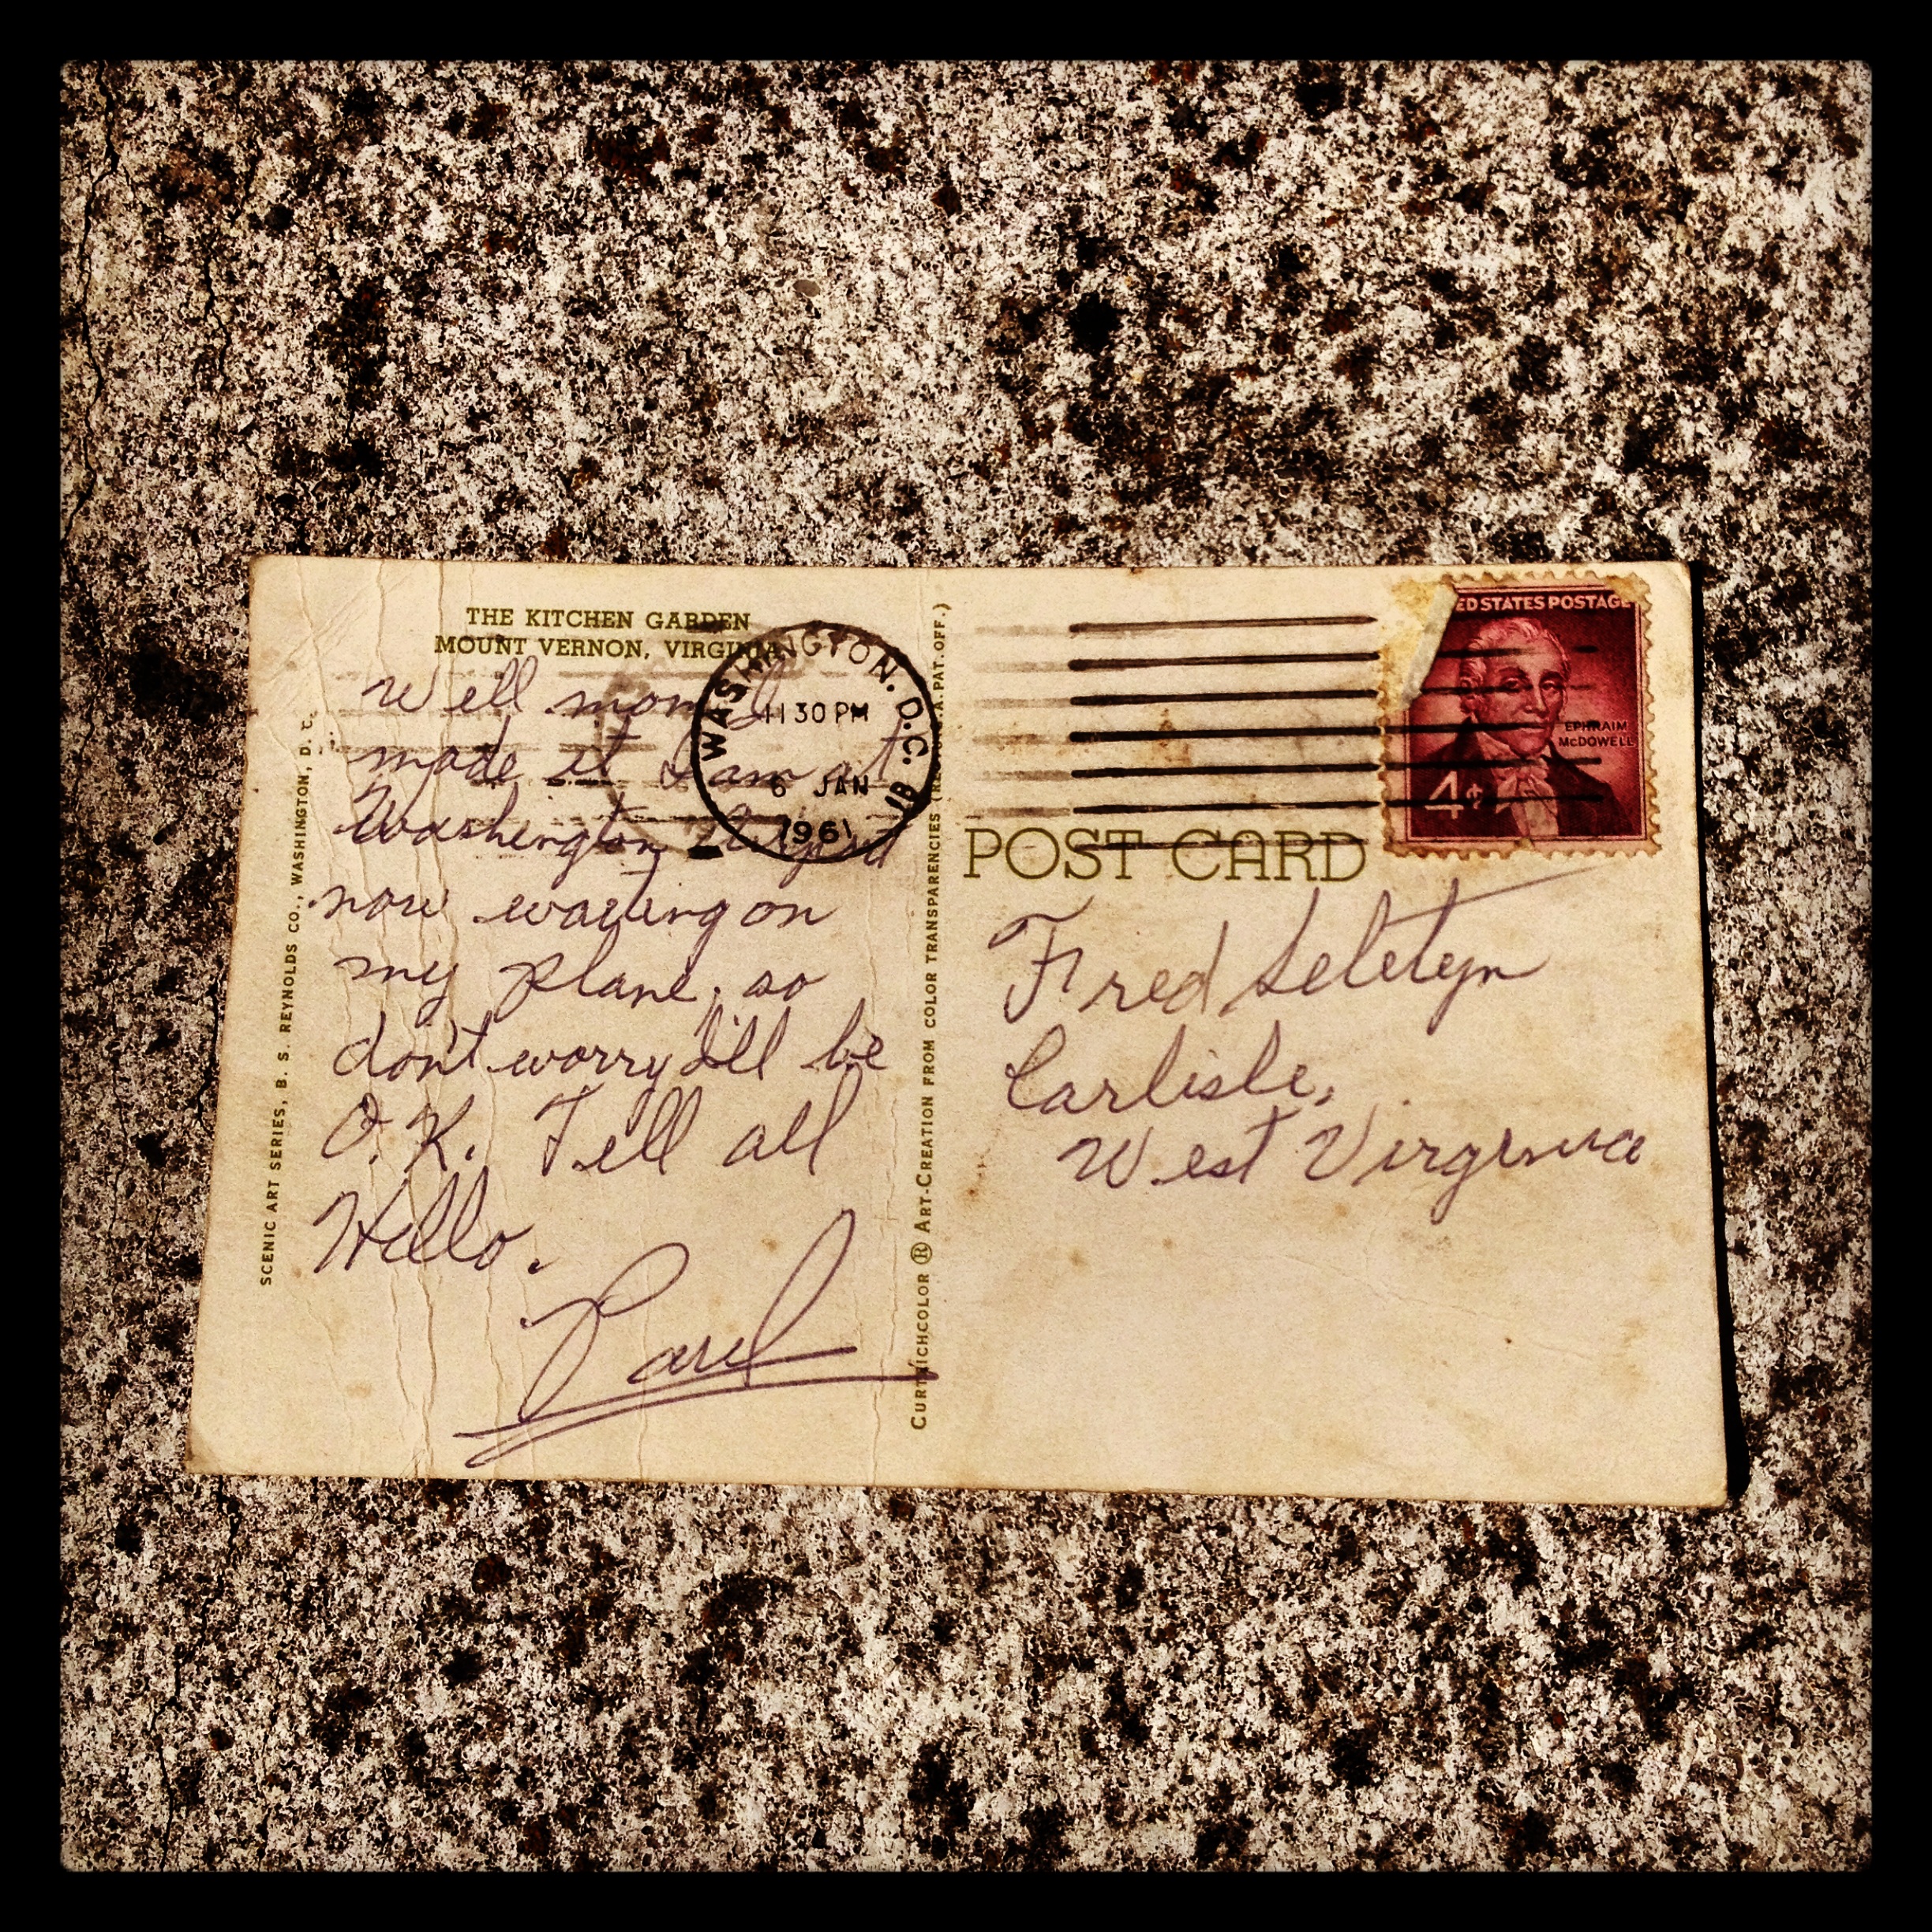 THE KITCHEN GARDEN
MOUNT VERNON, VIRGINIA
Well mom I
made it I am at
Washington
now waiting on
my plane, so
don't worry I'll be
O.K. Tell all
Hello.
Paul
SCENIC ART SERIES, B. S. REYNOLDS CO., WASHINGTON, D. C.
WASHINGTON, D.C.
11 30 PM
6 JAN
1961
CURTEICHCOLOR ® ART-CREATION FROM COLOR TRANSPARENCIES (REG. U.S.A. PAT. OFF.)
ED STATES POSTAGE
EPHRAIM
McDOWELL
4¢
POST CARD
Fred
Carlisle,
West Virginia